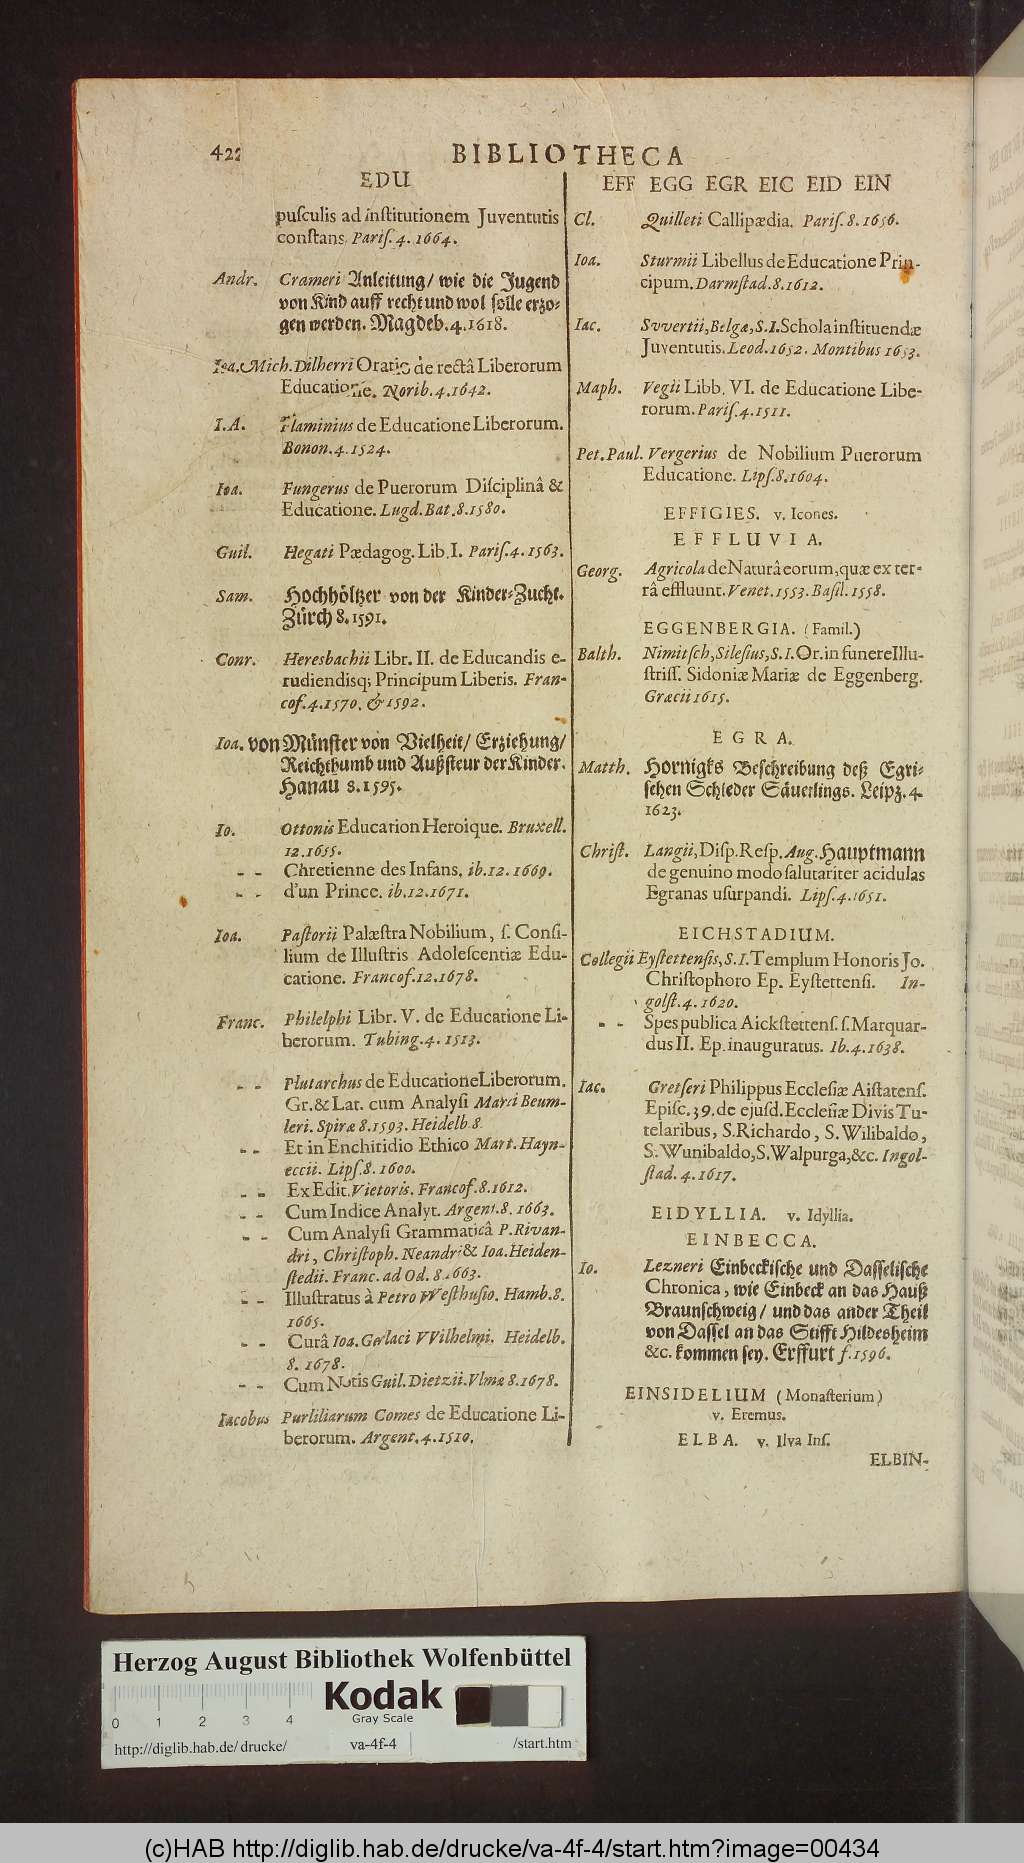 422
BIBLIOTHECA
EDU
puſculis ad inſtitutionem Juventutis
conſtans. Pariſ. 4. 1664.
Andr. Crameri Anleitung/ wie die Jugend
von Kind auff recht und wol ſolle erzo-
gen werden. Magdeb. 4. 1618.
Ioa. Mich. Dilherri Oratio de rectâ Liberorum
Educatione. Norib. 4. 1642.
I. A. Flaminius de Educatione Liberorum.
Bonon. 4. 1524.
Ioa. Fungerus de Puerorum Diſciplinâ &
Educatione. Lugd. Bat. 8. 1580.
Guil. Hegati Pædagog. Lib. I. Pariſ. 4. 1563.
Sam. Hochhöltzer von der Kinder-Zucht.
Zürch 8. 1591.
Conr. Heresbachii Libr. II. de Educandis e-
rudiendisq; Principum Liberis. Fran-
cof. 4. 1570. & 1592.
Ioa. von Münſter von Vielheit/ Erziehung/
Reichthumb und Außſteur der Kinder.
Hanau 8. 1595.
Io. Ottonis Education Heroique. Bruxell.
12. 1655.
- - Chretienne des Infans. ib. 12. 1669.
- - d'un Prince. ib. 12. 1671.
Ioa. Paſtorii Palæſtra Nobilium, ſ. Conſi-
lium de Illuſtris Adoleſcentiæ Edu-
catione. Francof. 12. 1678.
Franc. Philelphi Libr. V. de Educatione Li-
berorum. Tubing. 4. 1513.
- - Plutarchus de Educatione Liberorum.
Gr. & Lat. cum Analyſi Marci Beum-
leri. Spiræ 8. 1593. Heidelb. 8
- - Et in Enchiridio Ethico Mart. Hayn-
eccii. Lipſ. 8. 1600.
- - Ex Edit. Vietoris. Francof. 8. 1612.
- - Cum Indice Analyt. Argent. 8. 1663.
- - Cum Analyſi Grammaticâ P. Rivan-
dri, Chriſtoph. Neandri & Ioa. Heiden-
ſtedii. Franc. ad Od. 8. 1663.
- - Illuſtratus à Petro VVeſthuſio. Hamb. 8.
1665.
- - Curâ Ioa. Gerlaci VVilhelmi. Heidelb.
8. 1678.
- - Cum Notis Guil. Dietzii. Ulmæ 8. 1678.
Iacobus Purliliarum Comes de Educatione Li-
berorum. Argent. 4. 1510.
EFF EGG EGR EIC EID EIN
Cl. Quilleti Callipædia. Pariſ. 8. 1656.
Ioa. Sturmii Libellus de Educatione Prin-
cipum. Darmſtad. 8. 1612.
Iac. Svvertii, Belgæ, S. I. Schola inſtituendæ
Juventutis. Leod. 1652. Montibus 1653.
Maph. Vegii Libb. VI. de Educatione Libe-
rorum. Pariſ. 4. 1511.
Pet. Paul. Vergerius de Nobilium Puerorum
Educatione. Lipſ. 8. 1604.
EFFIGIES. v. Icones.
EFFLUVIA.
Georg. Agricola de Naturâ eorum, quæ ex ter-
râ effluunt. Venet. 1553. Baſil. 1558.
EGGENBERGIA. (Famil.)
Balth. Nimitſch, Sileſius, S. I. Or. in funere Illu-
ſtriſſ. Sidoniæ Mariæ de Eggenberg.
Græcii 1615.
EGRA.
Matth. Hornigks Beſchreibung deß Egri-
ſchen Schleder Säuerlings. Leipz. 4.
1623.
Chriſt. Langii, Diſp. Reſp. Aug. Hauptmann
de genuino modo ſalutariter acidulas
Egranas uſurpandi. Lipſ. 4. 1651.
EICHSTADIUM.
Collegii Eyſtettenſis, S. I. Templum Honoris Jo.
Chriſtophoro Ep. Eyſtettenſi. In-
golſt. 4. 1620.
- - Spes publica Aickſtettenſ. ſ. Marquar-
dus II. Ep. inauguratus. Ib. 4. 1638.
Iac. Gretſeri Philippus Eccleſiæ Aiſtatenſ.
Epiſc. 39. de ejuſd. Eccleſiæ Divis Tu-
telaribus, S. Richardo, S. Wilibaldo,
S. Wunibaldo, S. Walpurga, &c. Ingol-
ſtad. 4. 1617.
EIDYLLIA. v. Idyllia.
EINBECCA.
Io. Lezneri Einbeckiſche und Daſſeliſche
Chronica, wie Einbeck an das Hauß
Braunſchweig/ und das ander Theil
von Daſſel an das Stifft Hildesheim
&c. kommen ſey. Erffurt f. 1596.
EINSIDELIUM (Monaſterium)
v. Eremus.
ELBA. v. Ilva Inſ.
ELBIN-
Herzog August Bibliothek Wolfenbüttel
Kodak
Gray Scale
0 1 2 3 4
http://diglib.hab.de/drucke/ va-4f-4 /start.htm
(c)HAB http://diglib.hab.de/drucke/va-4f-4/start.htm?image=00434